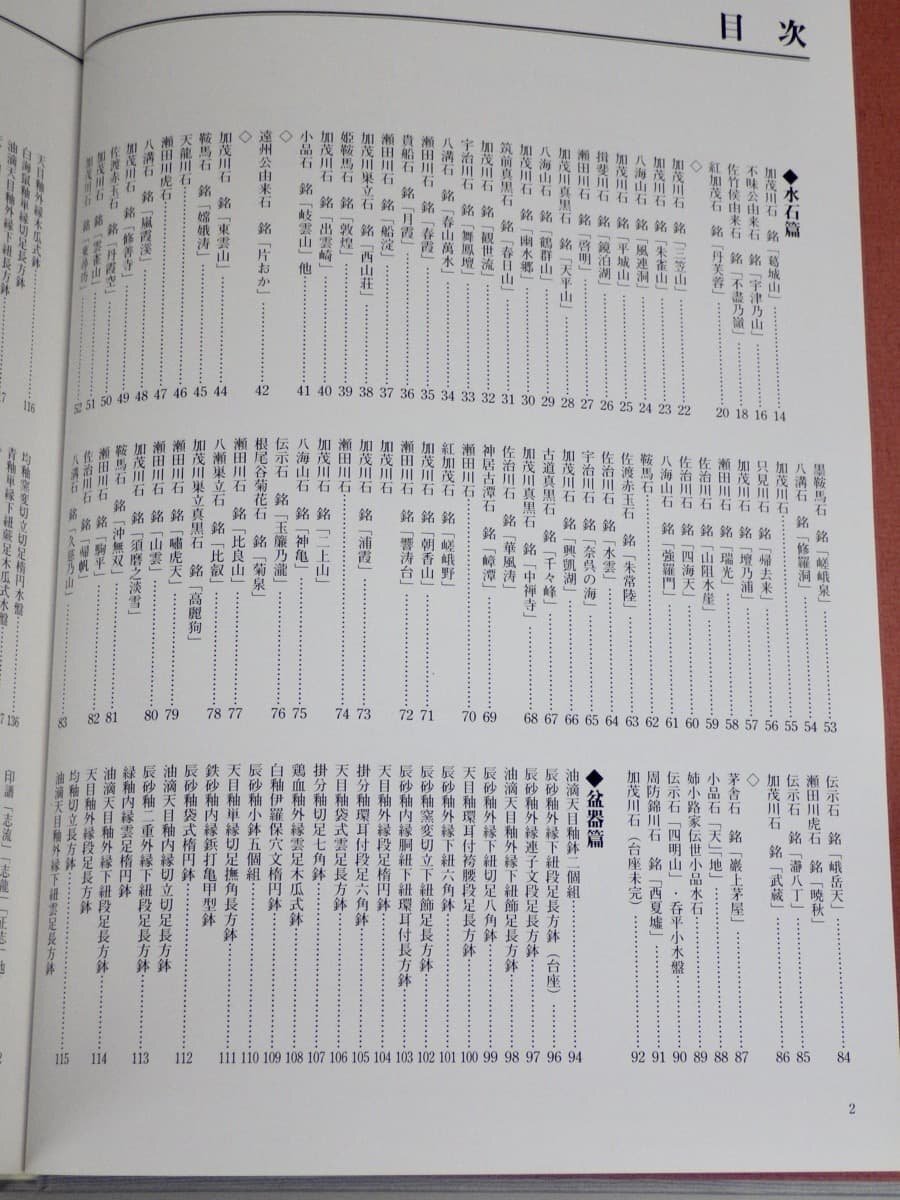 目次
◆水石篇
加茂川石 銘「葛城山」……14
不味公由来石 銘「宇津乃山」……16
佐竹侯由来石 銘「不盡乃嶺」……18
紅加茂石 銘「丹芙蓉」……20
◇
加茂川石 銘「三笠山」……22
加茂川石 銘「朱雀山」……23
八海山石 銘「風連洞」……24
加茂川石 銘「平城山」……25
揖斐川石 銘「鏡泊湖」……26
瀬田川石 銘「啓明」……27
加茂川真黒石 銘「天平山」……28
八海山石 銘「鶴群山」……29
加茂川石 銘「幽水郷」……30
筑前真黒石 銘「春日山」……31
加茂川石 銘「観世流」……32
宇治川石 銘「舞鳳壇」……33
八溝石 銘「春山萬水」……34
瀬田川石 銘「春霞」……35
貴船石 銘「月霞」……36
瀬田川石 銘「船淀」……37
加茂川巣立石 銘「西山荘」……38
姫鞍馬石 銘「敦煌」……39
加茂川石 銘「出雲崎」……40
小品石 銘「岐雲山」他……41
◇
遠州公由来石 銘「片おか」……42
◇
加茂川石 銘「東雲山」……44
鞍馬石 銘「嫦娥涛」……45
天龍石……46
瀬田川虎石……47
八溝石 銘「嵐霞渓」……48
加茂川石 銘「修善寺」……49
佐渡赤玉石 銘「丹霞空」……50
加茂川石 銘「雲雀山」……51
加茂川石 銘「東尋坊」……52
墨鞍馬石 銘「嵯峨泉」……53
八溝石 銘「修羅洞」……54
加茂川石……55
只見川石 銘「帰去来」……56
加茂川石 銘「壇乃浦」……57
瀬田川石 銘「瑞光」……58
佐治川石 銘「山阻水崖」……59
佐治川石 銘「四海天」……60
八海山石 銘「強羅門」……61
鞍馬石……62
佐渡赤玉石 銘「朱常陸」……63
佐治川石 銘「水雲」……64
宇治川石 銘「奈呉の海」……65
加茂川石 銘「興凱湖」……66
古道真黒石 銘「千々峰」……67
加茂川真黒石 銘「中禅寺」……68
佐治川石 銘「華風涛」
神居古潭石 銘「嶂潭」……69
瀬田川石……70
紅加茂石 銘「嵯峨野」
加茂川石 銘「朝香山」……71
瀬田川石 銘「響涛台」……72
加茂川石 銘「浦霞」……73
瀬田川石……74
加茂川石 銘「二上山」
八海山石 銘「神亀」……75
伝示石 銘「玉簾乃瀧」……76
根尾谷菊花石 銘「菊泉」
瀬田川石 銘「比良山」……77
八瀬巣立石 銘「比叡」……78
加茂川巣立真黒石 銘「高麗狗」
瀬田川石 銘「嘯虎天」……79
瀬田川石 銘「山雲」……80
加茂川石 銘「須磨之淡雪」
鞍馬石 銘「沖無双」……81
瀬田川石 銘「駒平」……82
佐治川石 銘「帰帆」
八溝石 銘「久慈乃山」……83
伝示石 銘「峨岳天」……84
瀬田川虎石 銘「暁秋」
伝示石 銘「瀞八丁」……85
加茂川石 銘「武蔵」……86
◇
茅舎石 銘「巌上茅屋」……87
小品石「天」「地」……88
姉小路家伝世小品水石……89
伝示石「四明山」・呑平小水盤……90
周防錦川石 銘「西夏墟」……91
加茂川石（台座未完）……92
◆盆器篇
油滴天目釉鉢二個組……94
辰砂釉外縁下紐段足長方鉢（台座）……96
辰砂釉外縁連子文段足長方鉢……97
油滴天目釉外縁下紐飾足長方鉢……98
辰砂釉外縁切足八角鉢……99
天目釉環耳付袴腰段足長方鉢……100
辰砂釉外縁下紐六角鉢……101
辰砂釉窯変切立下紐飾足長方鉢……102
辰砂釉内縁胴紐下紐環耳付長方鉢……103
天目釉外縁下紐段足楕円鉢……104
掛分釉環耳付段足六角鉢……105
天目釉袋式雲足長方鉢……106
掛分釉切足七角鉢……107
鶏血釉外縁雲足木瓜式鉢……108
白釉伊羅保穴文楕円鉢……109
辰砂釉小鉢五個組……110
天目釉単縁切足撫角長方鉢……111
鉄砂釉内縁鋲打亀甲型鉢
辰砂釉袋式段足楕円鉢……112
油滴天目釉内縁切立切足長方鉢
辰砂釉二重外縁下紐段足長方鉢……113
緑釉内縁雲足楕円鉢
油滴天目釉外縁下紐段足楕円鉢……114
天目釉外縁段足長方鉢
均釉切立長方鉢
油滴天目釉外縁下紐雲足長方鉢……115
2
天目釉外縁木瓜式鉢……116
白海鼠釉単縁切足長方鉢
油滴天目釉外縁下紐長方鉢
均釉窯変切立切足楕円水盤……136
青釉単縁下紐蕨足木瓜式水盤